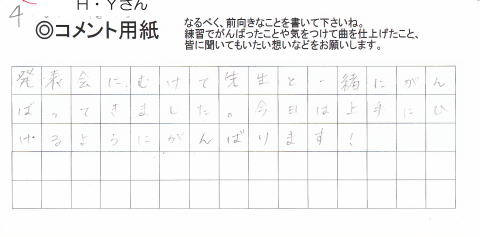 4
H・Yさん
◎コメント用紙
なるべく、前向きなことを書いて下さいね。
練習でがんばったことや気をつけて曲を仕上げたこと、
皆に聞いてもいたい想いなどをお願いします。
発表会にむけて先生と一緒にがん
ばってきました。今日は上手にひ
けるようにがんばります!